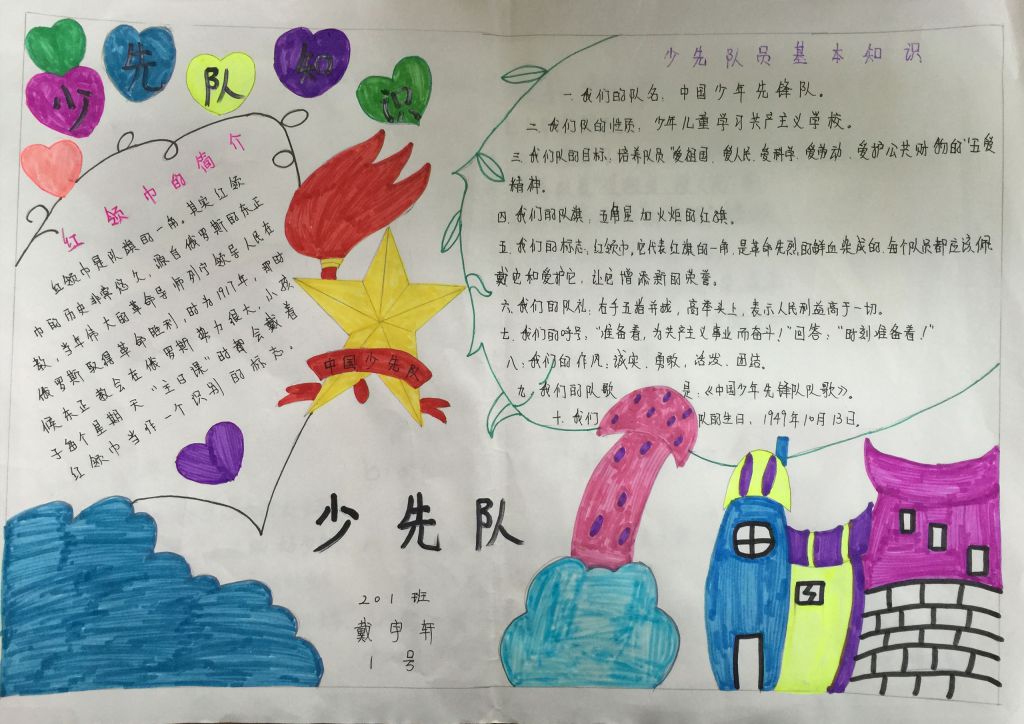 少先队知识
红领巾的简介
红领巾是队旗的一角。其实红领
巾的历史非常悠久，源自俄罗斯的东正
教，当年伟大的革命导师列宁领导人民在
俄罗斯取得革命胜利，时为1917年，那时
候东正教会在俄罗斯势力很大，小孩
子每个星期天“主日课”时都会戴着
红领巾当作一个识别的标志。
中国少先队
少先队
201班
戴宇轩
1号
少先队员基本知识
一、我们的队名：中国少年先锋队。
二、我们队的性质：少年儿童学习共产主义学校。
三、我们队的目标：培养队员“爱祖国、爱人民、爱科学、爱劳动、爱护公共财物的”五爱
精神。
四、我们的队旗：五角星加火炬的红旗。
五、我们的标志：红领巾。它代表红旗的一角，是革命先烈的鲜血染成的，每个队员都应该佩
戴它和爱护它，让它增添新的荣誉。
六、我们的队礼：右手五指并拢，高举头上，表示人民利益高于一切。
七、我们的呼号：“准备着，为共产主义事业而奋斗！”回答：“时刻准备着！”
八、我们的作风：诚实、勇敢、活泼、团结。
九、我们的队歌是：《中国少年先锋队队歌》。
十、我们队的生日：1949年10月13日。